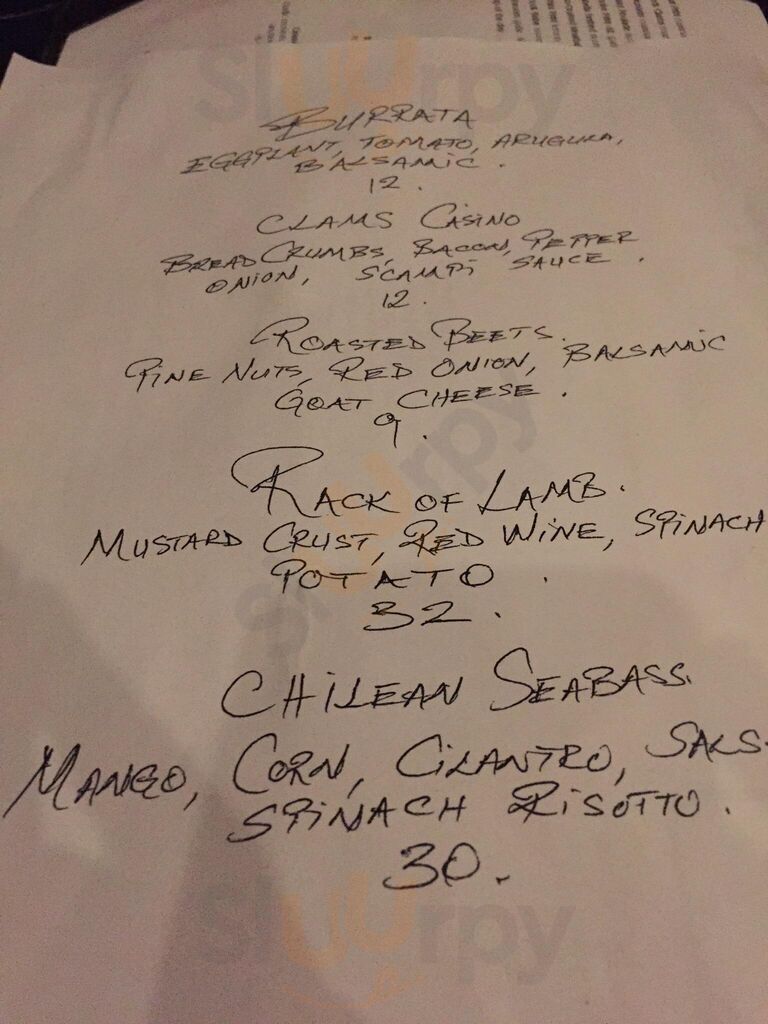 Sluurpy
BURRATA
EGGPLANT, TOMATO, ARUGULA,
BALSAMIC.
12.
CLAMS CASINO
BREAD CRUMBS, BACON, PEPPER
ONION, SCAMPI SAUCE.
12.
ROASTED BEETS.
PINE NUTS, RED ONION, BALSAMIC
GOAT CHEESE.
9.
Sluurpy
RACK OF LAMB.
MUSTARD CRUST, RED WINE, SPINACH
POTATO.
32.
CHILEAN SEABASS.
MANGO, CORN, CILANTRO, SALS
SPINACH RISOTTO.
30.
Sluurpy